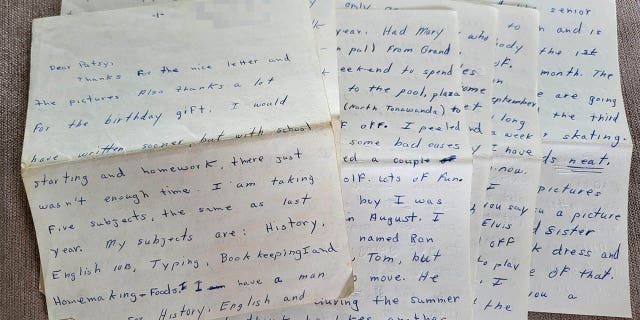 -1-
Dear Patsy,
Thanks for the nice letter and
the pictures Also thanks a lot
for the birthday gift. I would
have written sooner, but with school
starting and homework, there just
wasn't enough time. I am taking
five subjects, the same as last
year. My subjects are: History,
English 10B, Typing, Bookkeeping I and
Homemaking-Foods I. I have a man
for History, English and
only
year. Had Mary
pal) from Grand
eek-end to spend
to the pool, plaza
(North Tonawanda)
off. I peeled
some bad cases
ed a couple
olf. Lots of fun.
boy I was
n August. I
named Ron
, Tom, but
to move. He
during the summer
to
who
body
of.
some
september
et
long
and
a week
I have
now.
I
you say
Elvis
off
to play
I
the
senior
and is
the 1st
month. The
are going
the third
skating.
ds neat.
pictures
u a picture
d sister
k dress and
e of that.
you a